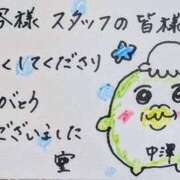 客様 スタッフの皆様
くしてくださり
がとう
ございました
室
中澤